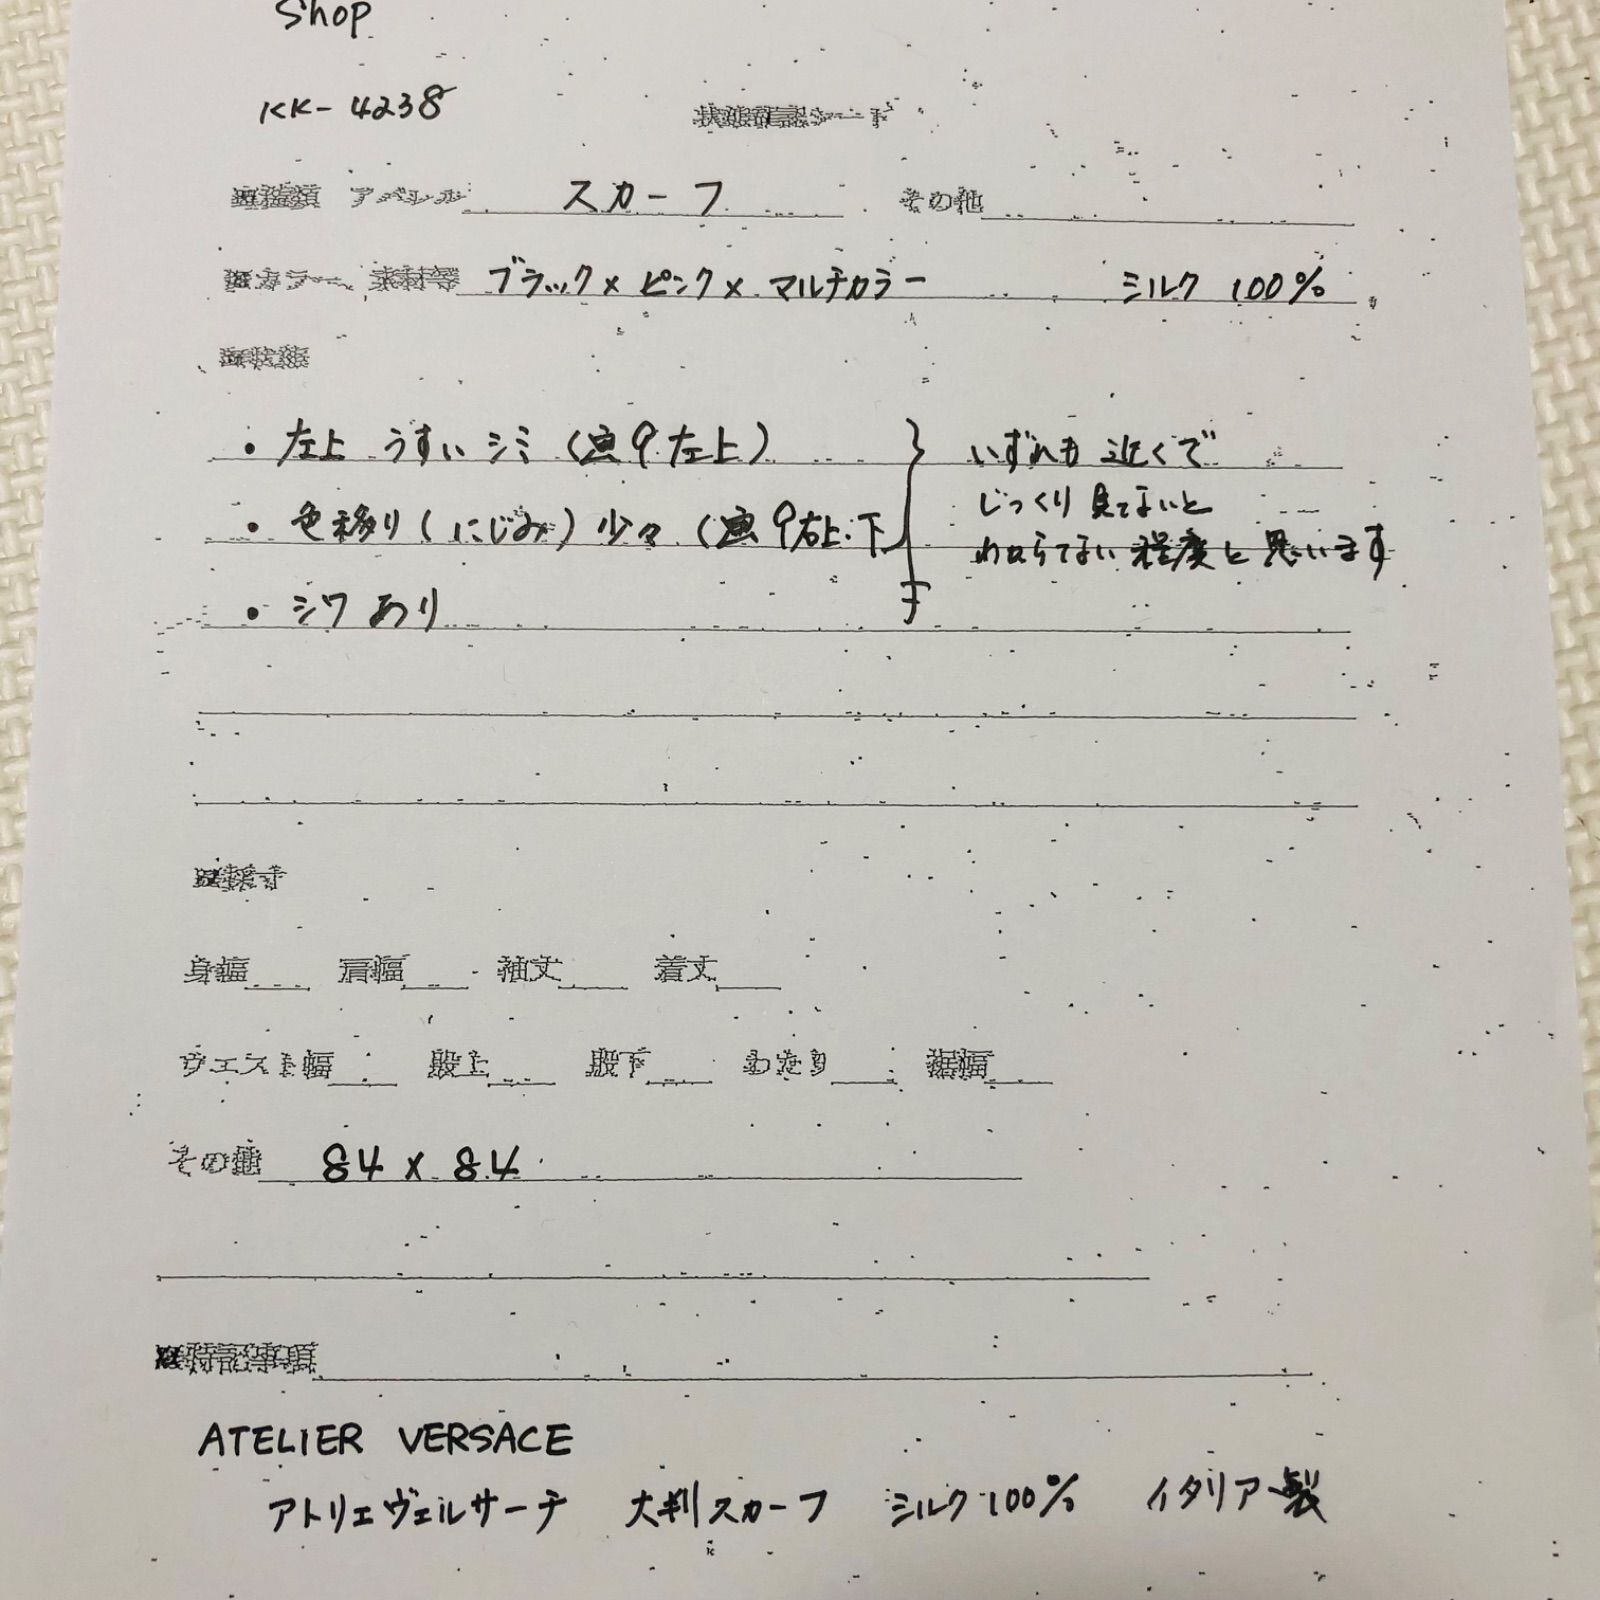 Shop
KK-4238
状態確認シート
種類 アパレル スカーフ その他
カラー、素材等 ブラック×ピンク×マルチカラー シルク 100%
状態
・左上 うすいシミ(画9左上)
・色移り(にじみ)少々(画9右上・下
・シワあり
いずれも 近くで
じっくり見てないと
わからない程度と思います
採寸
身幅 肩幅 袖丈 着丈
ウエスト幅 股上 股下 わたり 裾幅
その他 84×84
特記事項
ATELIER VERSACE
アトリエヴェルサーチ 大判スカーフ シルク100% イタリア製